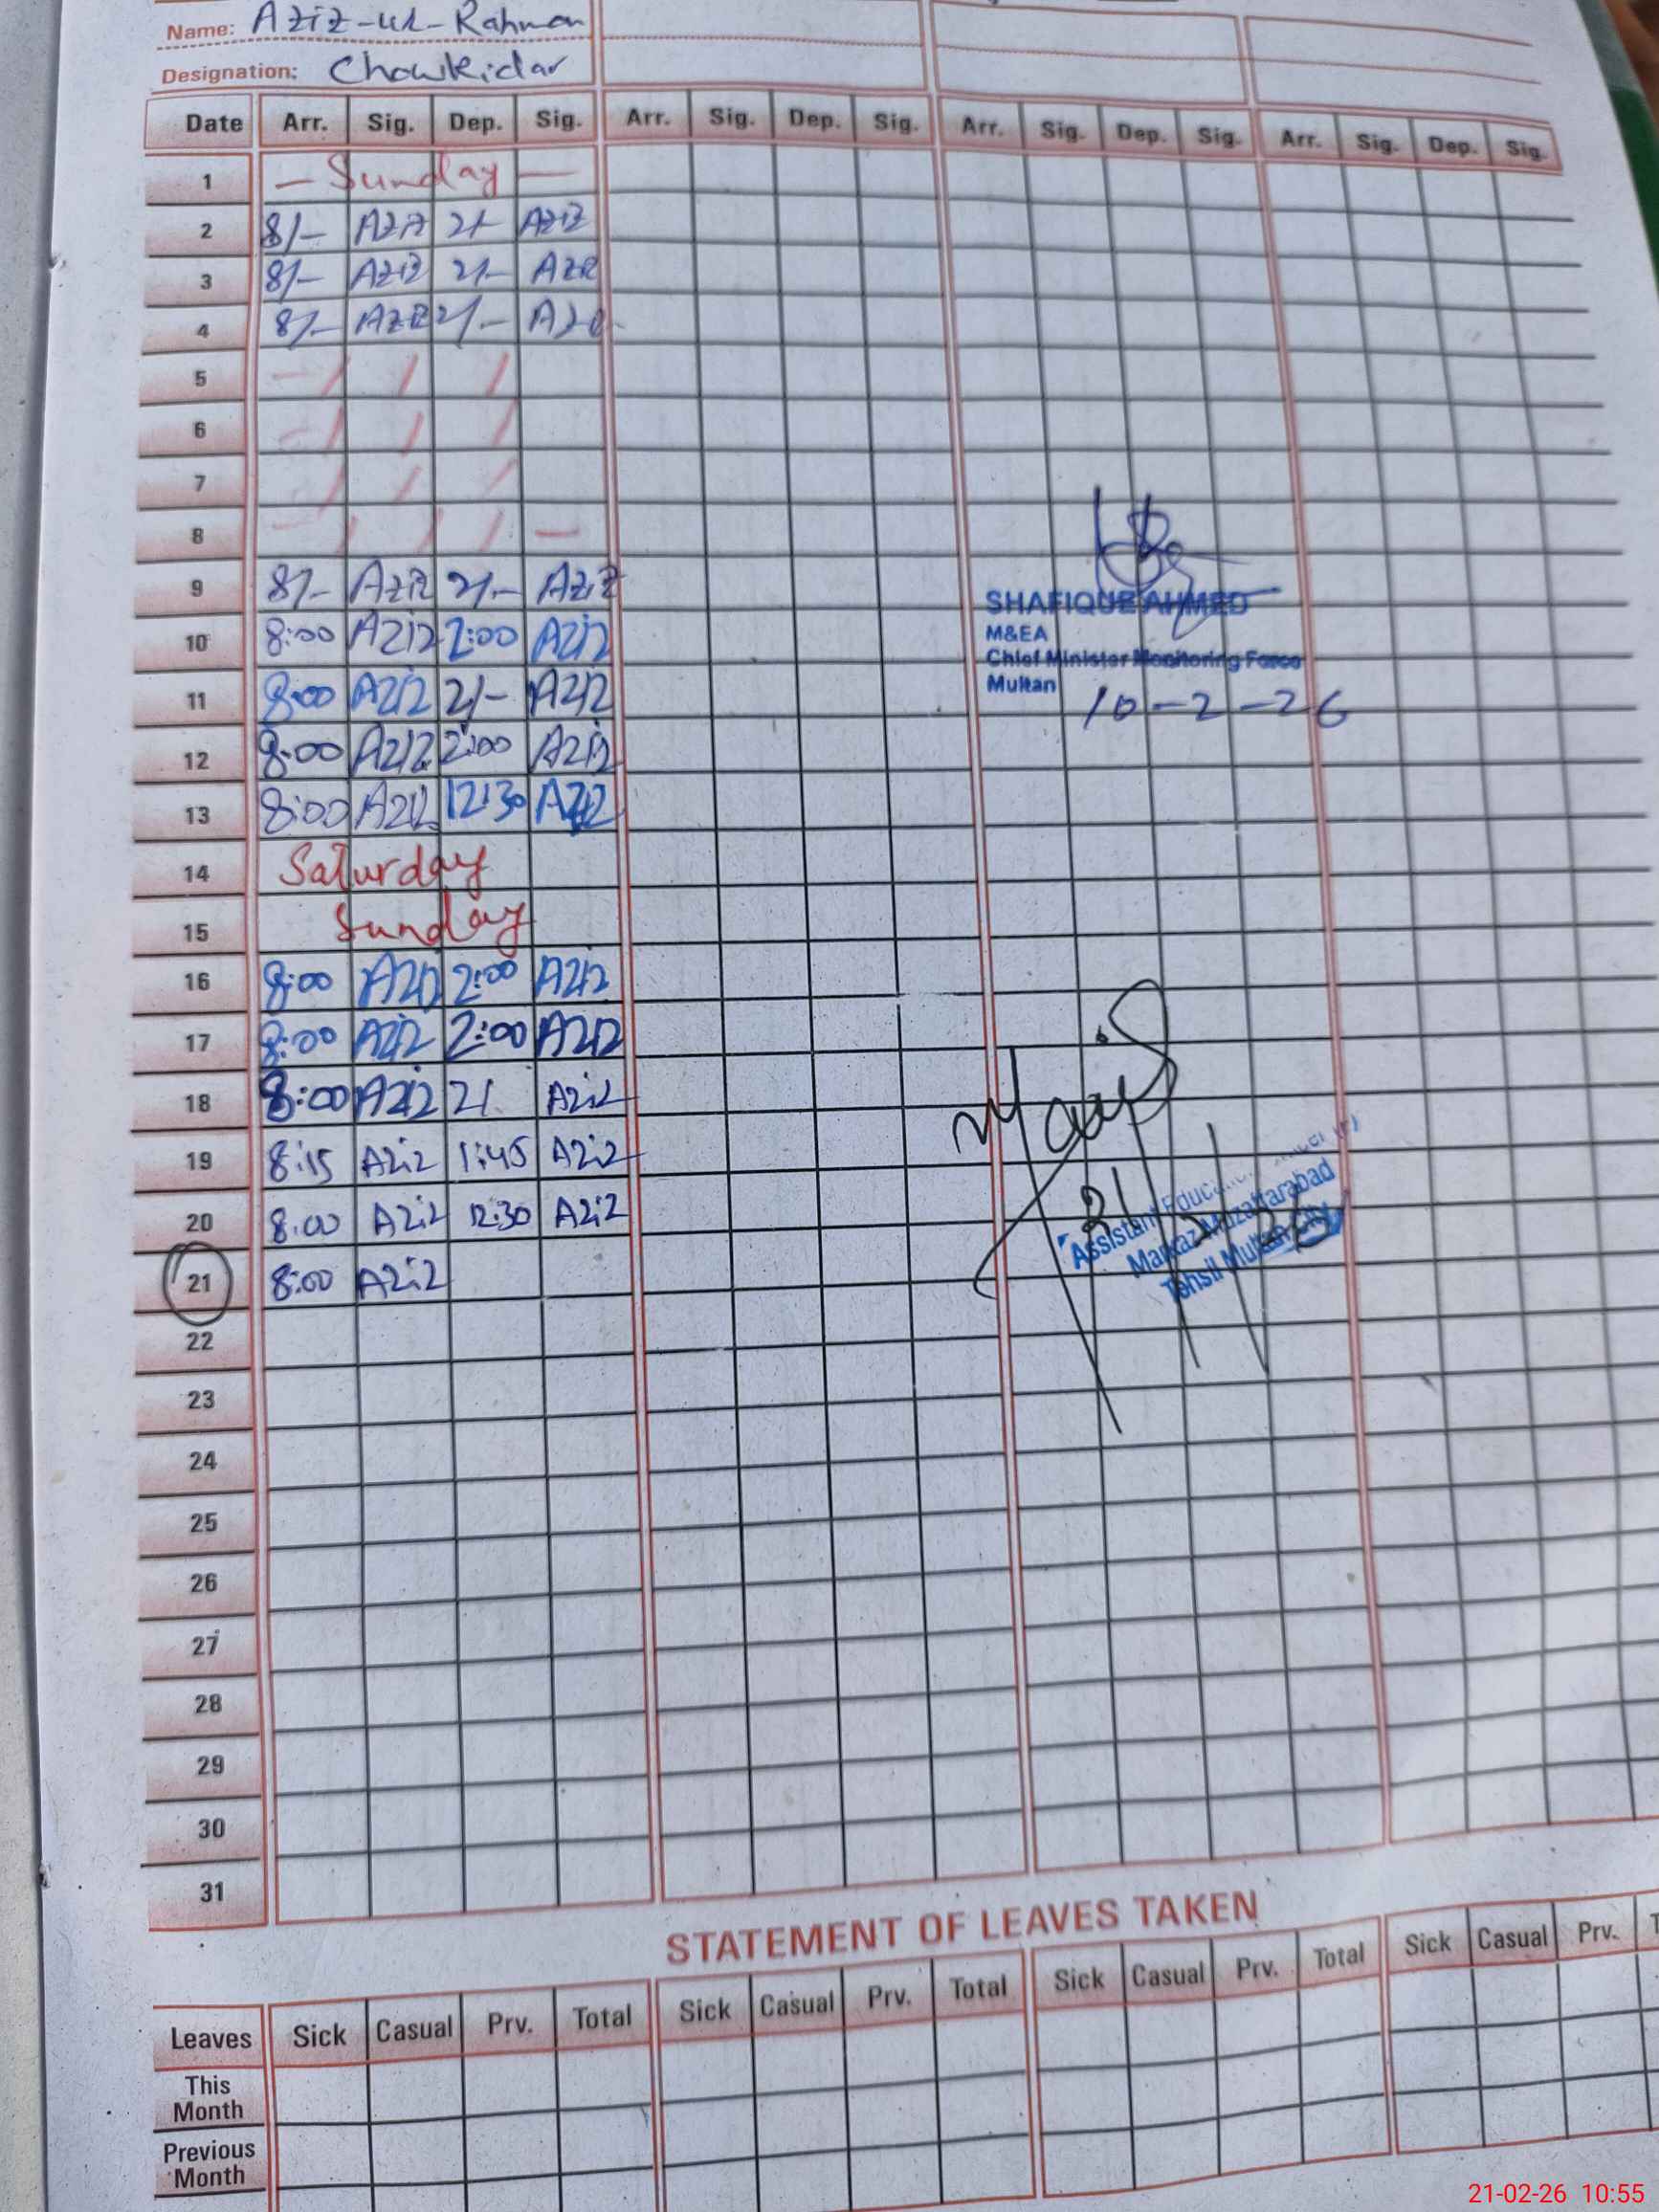 Name: Aziz-ur-Rahman
Designation: Chowkidar
Date Arr. Sig. Dep. Sig. Arr. Sig. Dep. Sig. Arr. Sig. Dep. Sig. Arr. Sig. Dep. Sig.
1 — Sunday —
2 8/- Aziz 2/- Aziz
3 8/- Aziz 2/- Aziz
4 8/- Aziz 2/-
5
6
7
8
9 8/- Aziz 2/- Aziz
SHAFIQUE AHMED
M&EA
10 8:00 Aziz 2:00 Aziz
Chief Minister Monitoring Force
Multan
11 8:00 Aziz 2/- Aziz
10-2-26
12 8:00 Aziz 2:00 Aziz
13 8:00 Aziz 12:30 Aziz
14 Saturday
15 Sunday
16 8:00 Aziz 2:00 Aziz
17 8:00 Aziz 2:00 Aziz
18 8:00 Aziz 2/ Aziz
19 8:15 Aziz 1:45 Aziz
20 8:00 Aziz 12:30 Aziz
Assistant Education Officer
Markaz Muzaffarabad
Tehsil Multan City
21 8:00 Aziz
22
23
24
25
26
27
28
29
30
31
STATEMENT OF LEAVES TAKEN
Leaves Sick Casual Prv. Total Sick Casual Prv. Total Sick Casual Prv. Total Sick Casual Prv.
This Month
Previous Month
21-02-26 10:55